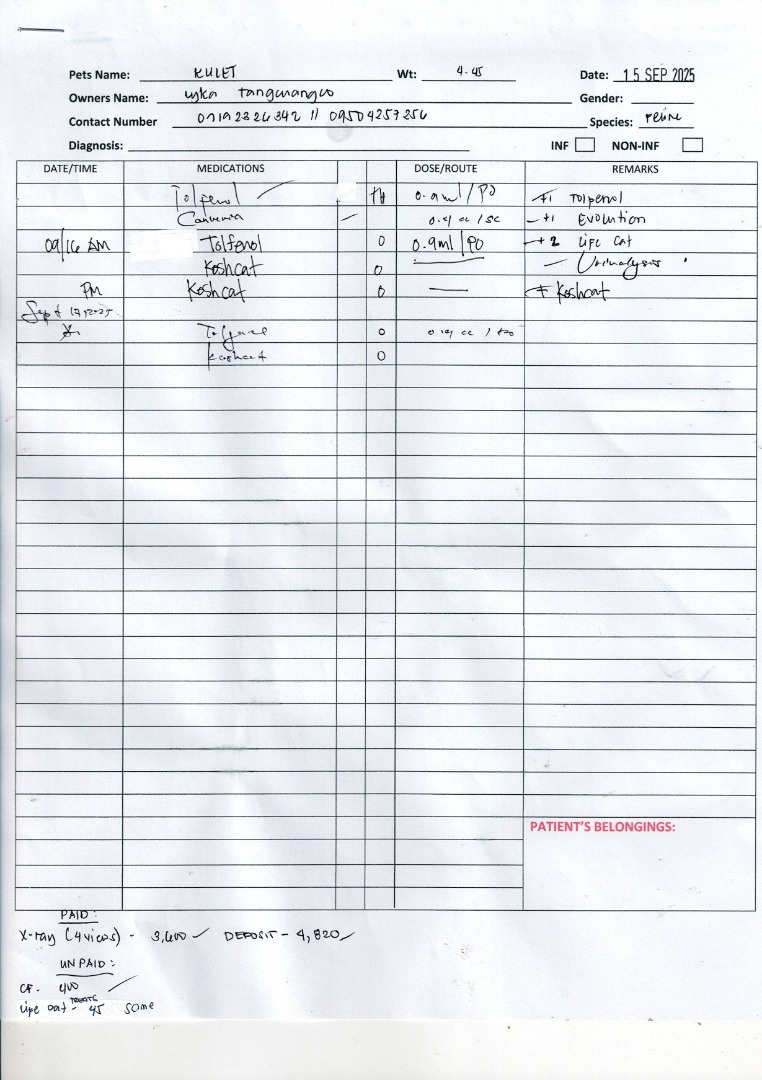 Pets Name: KULET Wt: 4.45 Date: 15 SEP 2025
Owners Name: Gender:
Contact Number // 09504257256 Species: Feline
Diagnosis: INF NON-INF
DATE/TIME MEDICATIONS DOSE/ROUTE REMARKS
Tolfenol 0.9ml/PO +1 Tolpenol
Convenia 0.9 cc/SC +1 Evolution
09/16 AM Tolfenol 0 0.9ml/PO +2 Life Cat
Koshcat 0 Urinalysis
PM Koshcat 0 — + Koshcat
Sept 17, 2025
0
Koshcat 0
PATIENT'S BELONGINGS:
PAID:
X-ray (4 views) - 3,600 DEPOSIT - 4,820
UNPAID:
CF. 400
Life cat - 45 same